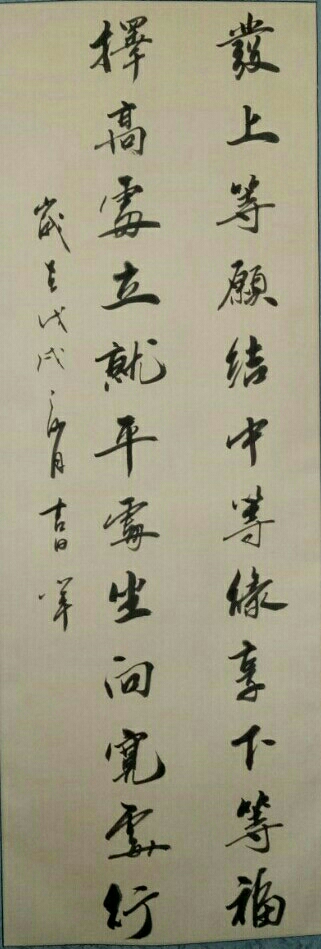 發上等願結中等緣享下等福
擇高處立就平處坐向寬處行
歲在戊戌 月吉日